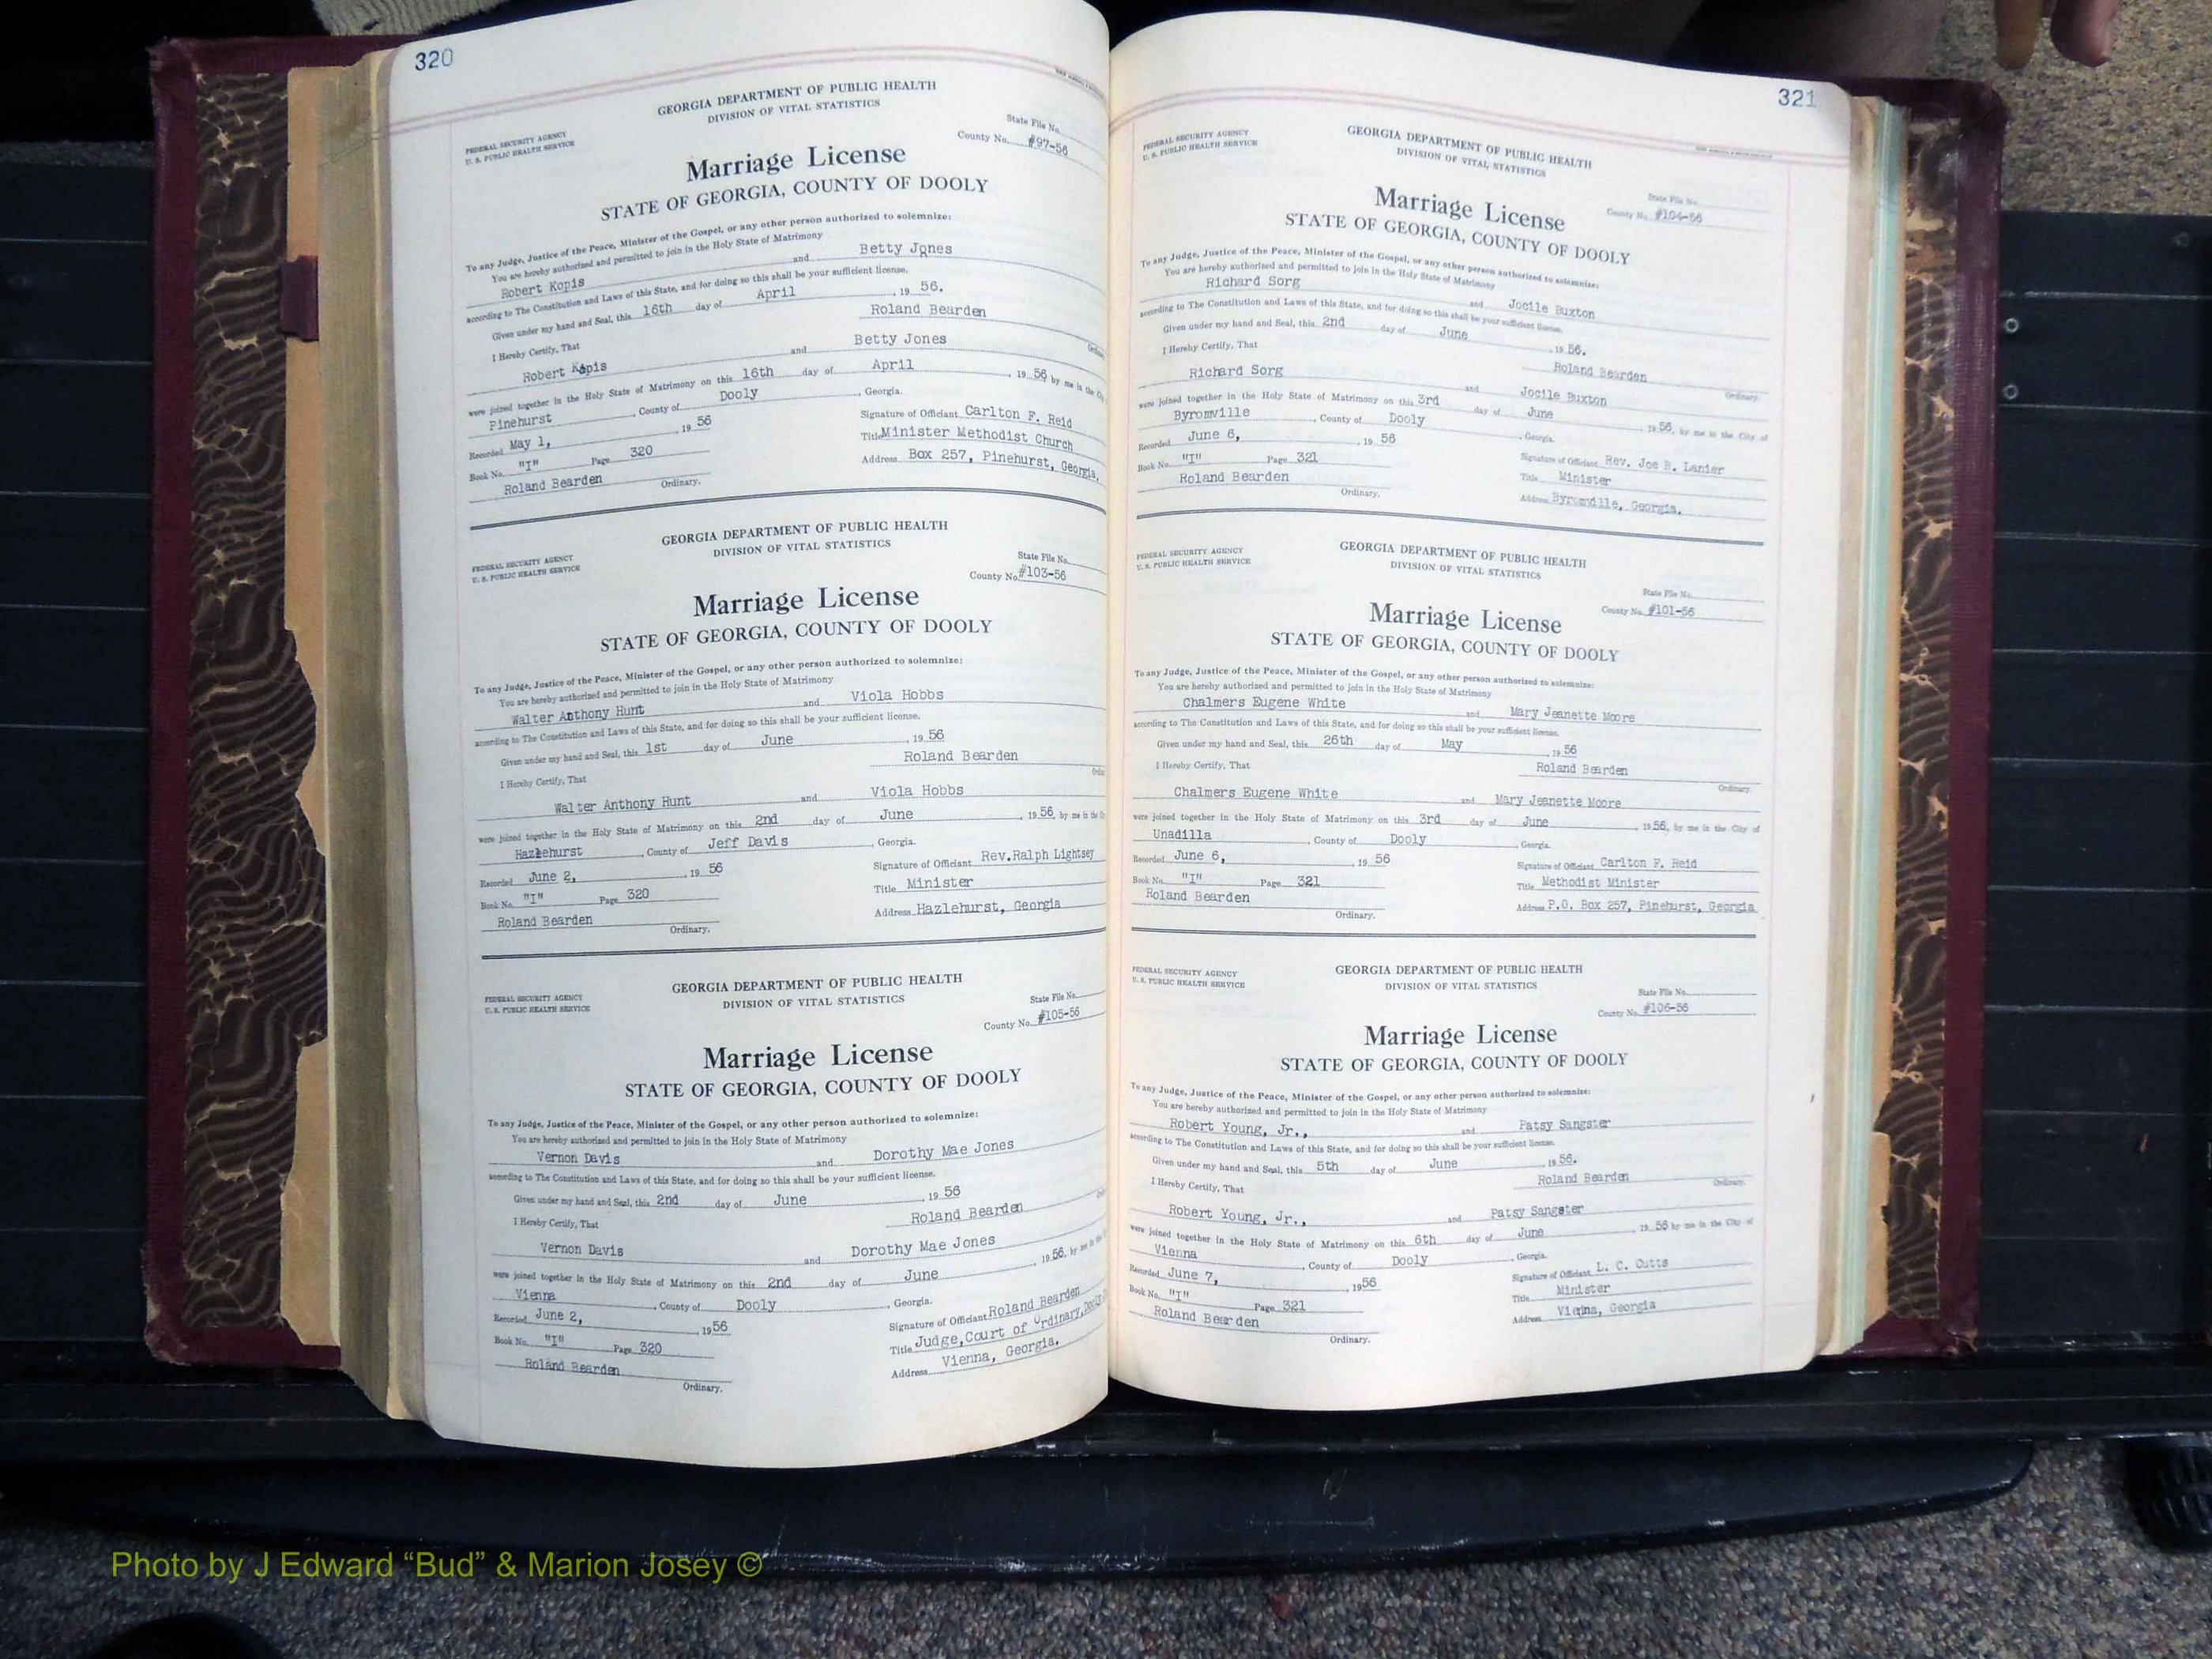 320
GEORGIA DEPARTMENT OF PUBLIC HEALTH
DIVISION OF VITAL STATISTICS
FEDERAL SECURITY AGENCY
U. S. PUBLIC HEALTH SERVICE
State File No.
County No. #97-56
Marriage License
STATE OF GEORGIA, COUNTY OF DOOLY
To any Judge, Justice of the Peace, Minister of the Gospel, or any other person authorized to solemnize:
You are hereby authorized and permitted to join in the Holy State of Matrimony
Robert Kopis and Betty Jones
according to The Constitution and Laws of this State, and for doing so this shall be your sufficient license.
Given under my hand and Seal, this 16th day of April, 19 56.
Roland Bearden
I Hereby Certify, That
Robert Kopis and Betty Jones
were joined together in the Holy State of Matrimony on this 16th day of April, 19 56 by me in the
Pinehurst, County of Dooly, Georgia.
Recorded May 1, 19 56
Signature of Officiant Carlton F. Reid
Book No. "I" Page 320
Title Minister Methodist Church
Roland Bearden
Address Box 257, Pinehurst, Georgia.
Ordinary.
GEORGIA DEPARTMENT OF PUBLIC HEALTH
DIVISION OF VITAL STATISTICS
FEDERAL SECURITY AGENCY
U. S. PUBLIC HEALTH SERVICE
State File No.
County No. #103-56
Marriage License
STATE OF GEORGIA, COUNTY OF DOOLY
To any Judge, Justice of the Peace, Minister of the Gospel, or any other person authorized to solemnize:
You are hereby authorized and permitted to join in the Holy State of Matrimony
Walter Anthony Hunt and Viola Hobbs
according to The Constitution and Laws of this State, and for doing so this shall be your sufficient license.
Given under my hand and Seal, this 1st day of June, 19 56
Roland Bearden
I Hereby Certify, That
Walter Anthony Hunt and Viola Hobbs
were joined together in the Holy State of Matrimony on this 2nd day of June, 19 56, by me in the
Hazlehurst, County of Jeff Davis, Georgia.
Recorded June 2, 19 56
Signature of Officiant Rev.Ralph Lightsey
Book No. "I" Page 320
Title Minister
Roland Bearden
Address Hazlehurst, Georgia
Ordinary.
GEORGIA DEPARTMENT OF PUBLIC HEALTH
DIVISION OF VITAL STATISTICS
FEDERAL SECURITY AGENCY
U. S. PUBLIC HEALTH SERVICE
State File No.
County No. #105-56
Marriage License
STATE OF GEORGIA, COUNTY OF DOOLY
To any Judge, Justice of the Peace, Minister of the Gospel, or any other person authorized to solemnize:
You are hereby authorized and permitted to join in the Holy State of Matrimony
Vernon Davis and Dorothy Mae Jones
according to The Constitution and Laws of this State, and for doing so this shall be your sufficient license.
Given under my hand and Seal, this 2nd day of June, 19 56
Roland Bearden
I Hereby Certify, That
Vernon Davis and Dorothy Mae Jones
were joined together in the Holy State of Matrimony on this 2nd day of June, 19 56, by me in the
Vienna, County of Dooly, Georgia.
Recorded June 2, 19 56
Signature of Officiant Roland Bearden
Book No. "I" Page 320
Title Judge,Court of Ordinary,
Roland Bearden
Address Vienna, Georgia.
Ordinary.
321
GEORGIA DEPARTMENT OF PUBLIC HEALTH
DIVISION OF VITAL STATISTICS
FEDERAL SECURITY AGENCY
U. S. PUBLIC HEALTH SERVICE
State File No.
County No. #104-56
Marriage License
STATE OF GEORGIA, COUNTY OF DOOLY
To any Judge, Justice of the Peace, Minister of the Gospel, or any other person authorized to solemnize:
You are hereby authorized and permitted to join in the Holy State of Matrimony
Richard Sorg and Jocile Buxton
according to The Constitution and Laws of this State, and for doing so this shall be your sufficient license.
Given under my hand and Seal, this 2nd day of June, 19 56.
Roland Bearden
I Hereby Certify, That
Ordinary.
Richard Sorg and Jocile Buxton
were joined together in the Holy State of Matrimony on this 3rd day of June, 19 56, by me in the City of
Byromville, County of Dooly, Georgia.
Recorded June 6, 19 56
Signature of Officiant Rev. Joe B. Lanier
Book No. "I" Page 321
Title Minister
Roland Bearden
Address Byromville, Georgia.
Ordinary.
GEORGIA DEPARTMENT OF PUBLIC HEALTH
DIVISION OF VITAL STATISTICS
FEDERAL SECURITY AGENCY
U. S. PUBLIC HEALTH SERVICE
State File No.
County No. #101-56
Marriage License
STATE OF GEORGIA, COUNTY OF DOOLY
To any Judge, Justice of the Peace, Minister of the Gospel, or any other person authorized to solemnize:
You are hereby authorized and permitted to join in the Holy State of Matrimony
Chalmers Eugene White and Mary Jeanette Moore
according to The Constitution and Laws of this State, and for doing so this shall be your sufficient license.
Given under my hand and Seal, this 26th day of May, 19 56
Roland Bearden
I Hereby Certify, That
Ordinary.
Chalmers Eugene White and Mary Jeanette Moore
were joined together in the Holy State of Matrimony on this 3rd day of June, 19 56, by me in the City of
Unadilla, County of Dooly, Georgia.
Recorded June 6, 19 56
Signature of Officiant Carlton F. Reid
Book No. "I" Page 321
Title Methodist Minister
Roland Bearden
Address P.O. Box 257, Pinehurst, Georgia
Ordinary.
GEORGIA DEPARTMENT OF PUBLIC HEALTH
DIVISION OF VITAL STATISTICS
FEDERAL SECURITY AGENCY
U. S. PUBLIC HEALTH SERVICE
State File No.
County No. #106-56
Marriage License
STATE OF GEORGIA, COUNTY OF DOOLY
To any Judge, Justice of the Peace, Minister of the Gospel, or any other person authorized to solemnize:
You are hereby authorized and permitted to join in the Holy State of Matrimony
Robert Young, Jr., and Patsy Sangster
according to The Constitution and Laws of this State, and for doing so this shall be your sufficient license.
Given under my hand and Seal, this 5th day of June, 19 56.
Roland Bearden
I Hereby Certify, That
Ordinary.
Robert Young, Jr., and Patsy Sangster
were joined together in the Holy State of Matrimony on this 6th day of June, 19 56 by me in the City of
Vienna, County of Dooly, Georgia.
Recorded June 7, 1956
Signature of Officiant L. C. Cutts
Book No. "I" Page 321
Title Minister
Roland Bearden
Address Vienna, Georgia
Ordinary.
Photo by J Edward “Bud” & Marion Josey ©